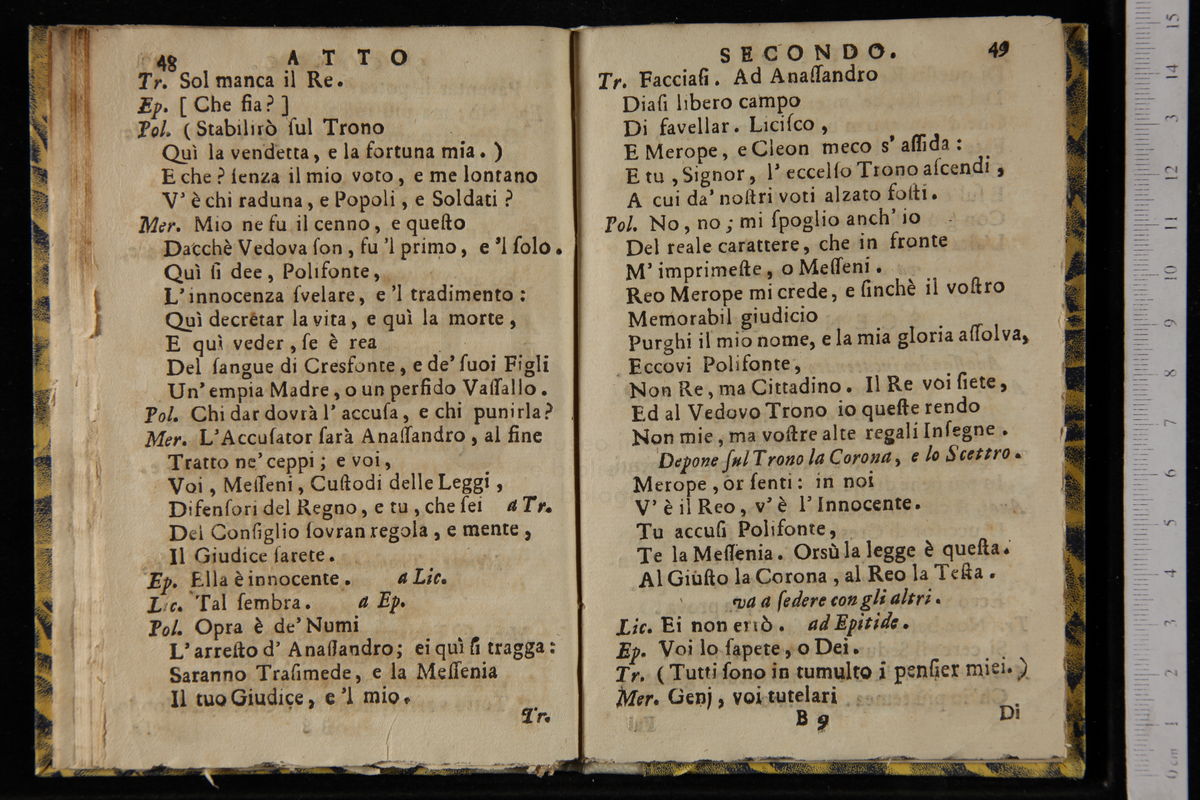 48 ATTO
Tr. Sol manca il Re.
Ep. [ Che fia? ]
Pol. (Stabilirò ſul Trono
Quì la vendetta, e la fortuna mia. )
E che? ſenza il mio voto, e me lontano
V' è chi raduna, e Popoli, e Soldati?
Mer. Mio ne fu il cenno, e queſto
Dacchè Vedova ſon, fu 'l primo, e 'l ſolo.
Quì ſi dee, Polifonte,
L'innocenza ſvelare, e 'l tradimento:
Quì decretar la vita, e quì la morte,
E quì veder, ſe è rea
Del ſangue di Cresfonte, e de' ſuoi Figli
Un' empia Madre, o un perfido Vaſſallo.
Pol. Chi dar dovrà l' accuſa, e chi punirla?
Mer. L'Accuſator ſarà Anaſſandro, al fine
Tratto ne' ceppi; e voi,
Voi, Meſſeni, Cuſtodi delle Leggi,
Difenſori del Regno, e tu, che ſei a Tr.
Del Conſiglio ſovran regola, e mente,
Il Giudice ſarete.
Ep. Ella è innocente. a Lic.
Lic. Tal ſembra. a Ep.
Pol. Opra è de' Numi
L'arreſto d' Anaſſandro; ei quì ſi tragga:
Saranno Traſimede, e la Meſſenia
Il tuo Giudice, e 'l mio.
Tr.
SECONDO. 49
Tr. Facciaſi. Ad Anaſſandro
Diaſi libero campo
Di favellar. Liciſco,
E Merope, e Cleon meco s' aſſida:
E tu, Signor, l' eccelſo Trono aſcendi,
A cui da' noſtri voti alzato foſti.
Pol. No, no; mi ſpoglio anch' io
Del reale carattere, che in fronte
M' imprimeſte, o Meſſeni.
Reo Merope mi crede, e ſinchè il voſtro
Memorabil giudicio
Purghi il mio nome, e la mia gloria aſſolva,
Eccovi Polifonte,
Non Re, ma Cittadino. Il Re voi ſiete,
Ed al Vedovo Trono io queſte rendo
Non mie, ma voſtre alte regali Inſegne.
Depone ſul Trono la Corona, e lo Scettro.
Merope, or ſenti: in noi
V' è il Reo, v' è l' Innocente.
Tu accuſi Polifonte,
Te la Meſſenia. Orsù la legge è queſta.
Al Giuſto la Corona, al Reo la Teſta.
va a ſedere con gli altri.
Lic. Ei non errò. ad Epitide.
Ep. Voi lo ſapete, o Dei.
Tr. (Tutti ſono in tumulto i penſier miei.)
Mer. Genj, voi tutelari
B 9 Di